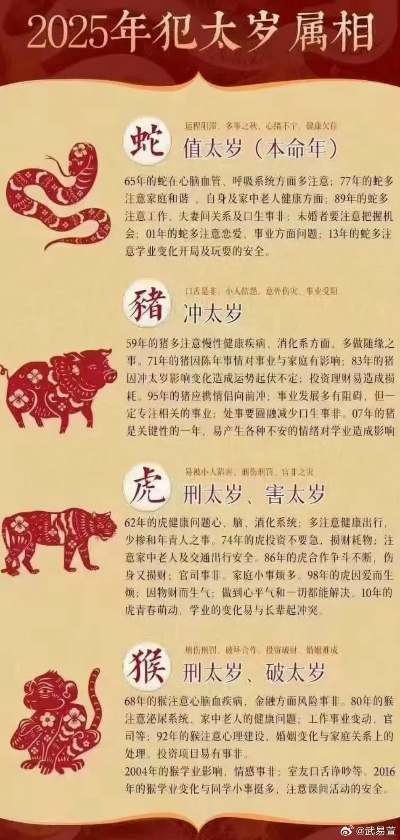 2025年犯太岁属相
蛇
运程阻滞、多事之秋、心绪不宁、健康欠佳
值太岁（本命年）
65年的蛇在心脑血管、呼吸系统方面多注意；77年的蛇多
注意家庭和谐，自身及家中老人健康方面；89年的蛇多
注意工作、夫妻间关系及口生事非；未婚者要注意把握机
会；01年的蛇多注意恋爱、事业方面问题；13年的蛇多注
意学业变化开局及玩耍的安全。
豬
口舌是非、小人怙恶、意外伤灾、事业受阻
冲太岁
59年的猪多注意慢性健康疾病、消化系方面，多做随缘之
事。71年的猪因陈年事情对事业与家庭有影响；83年的猪
因冲太岁影响变化造成运势起伏不定；投资理财易造成损
耗。95年的猪应携情侣向前冲；事业发展多有阻碍，但一
定专注相关的事业；处事要圆融减少口生事非。07年的猪
是关键性的一年，易产生各种不安的情绪对学业造成影响
虎
易被小人陷害、刑伤刑罚、官非之灾
刑太岁、害太岁
62年的虎健康问题心、脑、消化系统；多注意健康出行，
少掺和年青人之事。74年的虎投资不要急、损财耗物；注
意家中老人及交通出行安全。86年的虎合作争斗不断，伤
身又损财；官司事非。家庭小事烦多。98年的虎因爱而生
烦；因物财而生气；做到心平气和一切都能解决。10年的
虎青春萌动、学业的变化易与长辈起冲突。
猴
刑伤刑罚、破坏合作、投资破财、婚姻难成
刑太岁、破太岁
68年的猴注意心脑血疾病，金融方面风险事非。80年的猴
注意泌尿系统、家中老人的健康问题；工作事业变动、官
司等；92年的猴心理建设，婚姻变化与家庭关系上
的处理。投资项目易有事非。
2004年的猴学业影响、情感事非；室友口舌诤吵等。2016
年的猴学业变化与同学小事挺多，注意课间活动的安全。
@武易萱